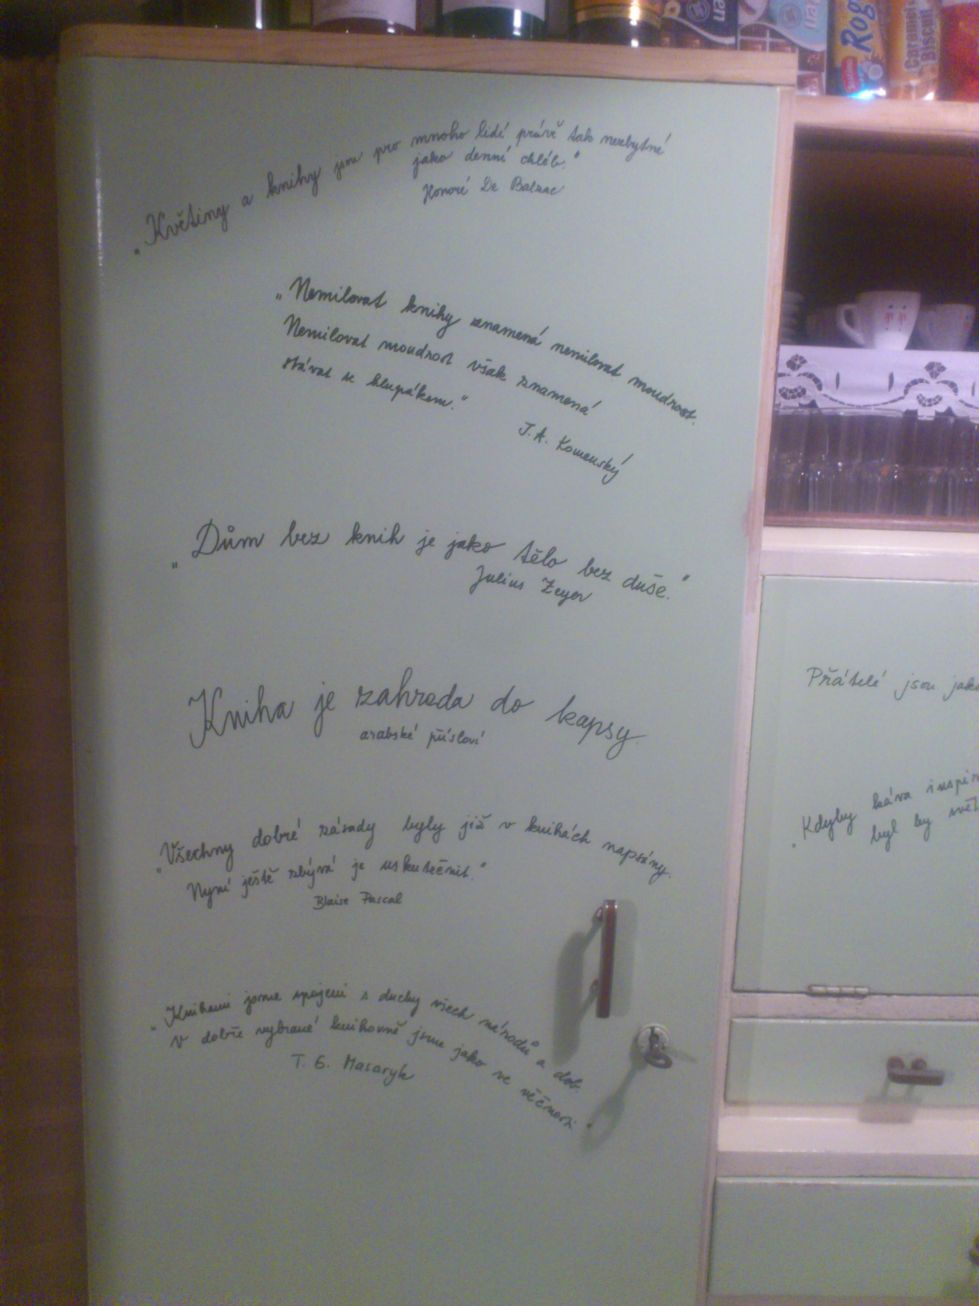 „Květiny a knihy jsou pro mnoho lidí právě tak nezbytné
jako denní chléb."
Honoré De Balzac
„Nemilovat knihy znamená nemilovat moudrost.
Nemilovat moudrost však znamená
stávat se hlupákem."
J.A. Komenský
„Dům bez knih je jako tělo bez duše."
Julius Zeyer
Kniha je zahrada do kapsy.
arabské přísloví
„Všechny dobré zásady byly již v knihách napsány.
Nyní ještě zbývá je uskutečnit."
Blaise Pascal
„Knihami jsme spojeni s duchy všech národů a dob.
v dobře vybrané knihovně jsme jako ve věčnosti."
T. G. Masaryk
Přátelé jsou jako
„Kdyby káva
byl by
Caramel
Biscuit